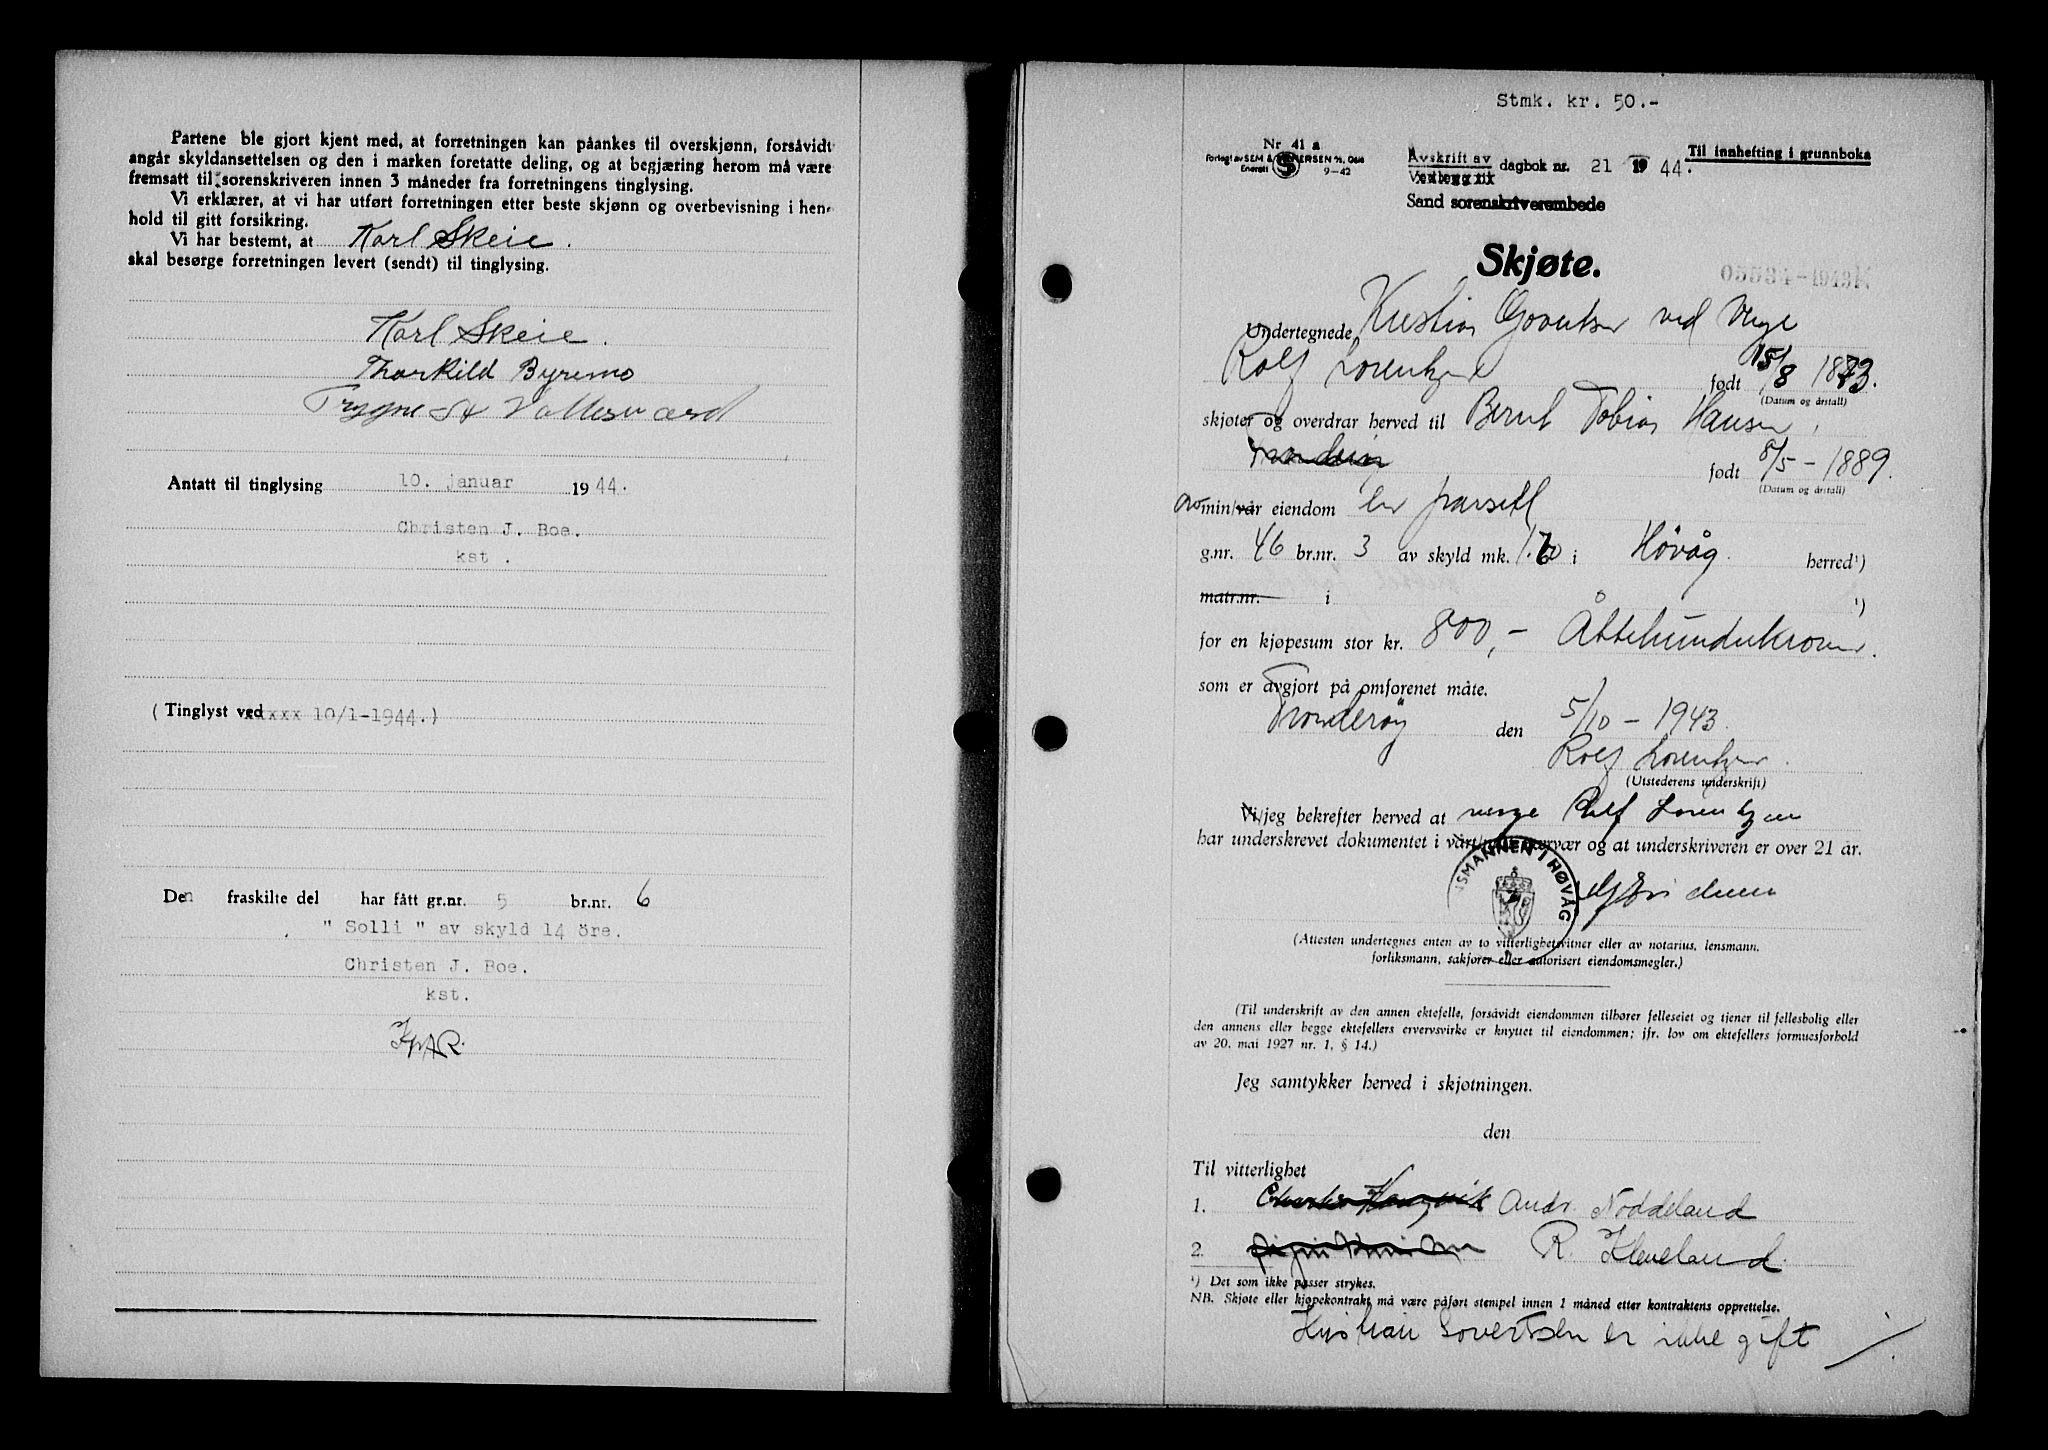 Partene ble gjort kjent med, at forretningen kan påankes til overskjønn, forsåvidt
angår skyldansettelsen og den i marken foretatte deling, og at begjæring herom må være
fremsatt til sorenskriveren innen 3 måneder fra forretningens tinglysing.
Vi erklærer, at vi har utført forretningen etter beste skjønn og overbevisning i hen-
hold til gitt forsikring.
Vi har bestemt, at Karl Skeie.
skal besørge forretningen levert (sendt) til tinglysing.
Karl Skeie.
Thorkild Byremo
Trygve
Antatt til tinglysing 10. januar 1944.
Christen J. Boe.
kst.
(Tinglyst ved xxxxx 10/1-1944.)
Den fraskilte del har fått gr.nr. 5 br.nr. 6
" Solli " av skyld 14 öre.
Christen J. Boe.
kst.
Stmk. kr. 50.-
Nr 41 a
Forlagt av SEM & STENERSEN A/S, Oslo
Enerett 9-42
Avskrift av
Vedlegg til dagbok nr. 21 1944.
Til innhefting i grunnboka
Sand sorenskriverembede
Skjøte.
Undertegnede Kristian Govertsen ved Verge
Rolf Lorentzen født 15/8 1873.
(Datum og årstall)
skjøter og overdrar herved til Bernt Tobias Hansen,
født 8/5 - 1889.
(Datum og årstall)
av min/vår eiendom en parsell
g.nr. 46 br.nr. 3 av skyld mk. i Høvåg herred ¹)
matr.nr. i ¹)
for en kjøpesum stor kr. 800,- Åttehundrekroner.
som er avgjort på omforenet måte.
Tronderøy den 5/10 - 1943.
Rolf Lorentzen.
(Utstederens underskrift)
Vi/jeg bekrefter herved at verge Rolf Lorentzen
har underskrevet dokumentet i vårt/mitt nærvær og at underskriveren er over 21 år.
LENSMANNEN I HØVÅG
(Attesten undertegnes enten av to vitterlighetsvitner eller av notarius, lensmann,
forliksmann, sakfører eller autorisert eiendomsmegler.)
(Til underskrift av den annen ektefelle, forsåvidt eiendommen tilhører felleseiet og tjener til fellesbolig eller
den annens eller begge ektefellers ervervsvirke er knyttet til eiendommen; jfr. lov om ektefellers formuesforhold
av 20. mai 1927 nr. 1, § 14.)
Jeg samtykker herved i skjøtningen.
den
Til vitterlighet
1. Andr. Noddeland
2. R. Kleveland.
¹) Det som ikke passer strykes.
NB. Skjøte eller kjøpekontrakt må være påført stempel innen 1 måned etter kontraktens opprettelse.
Kristian Govertsen er ikke gift